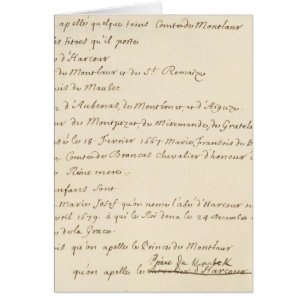 on apelle quelque tems Comte de Montlaur
les titres qu'il porte
d'Harcour
de Montlaur et de St. Romaize
uis de Maubec
n d'Aubenas, de Montbonet, et d'Aiguze
ur de Montpezat, de Miremande, de Gratela
le 18. Fevrier 1667. Marie, Fransoise de B
, Comte de Brancas Chevalier d'honneur
Reine mere.
enfans sont
Marie Josef qu'on nome l'abé d'Harcour n
vril 1679. à qui le Roi dona le 24 Decembre
de la Grace.
is qu'on apelle le Prince de Montlaur
Prince de Maubec
qu'on apelle le Chevalier d'Harcour